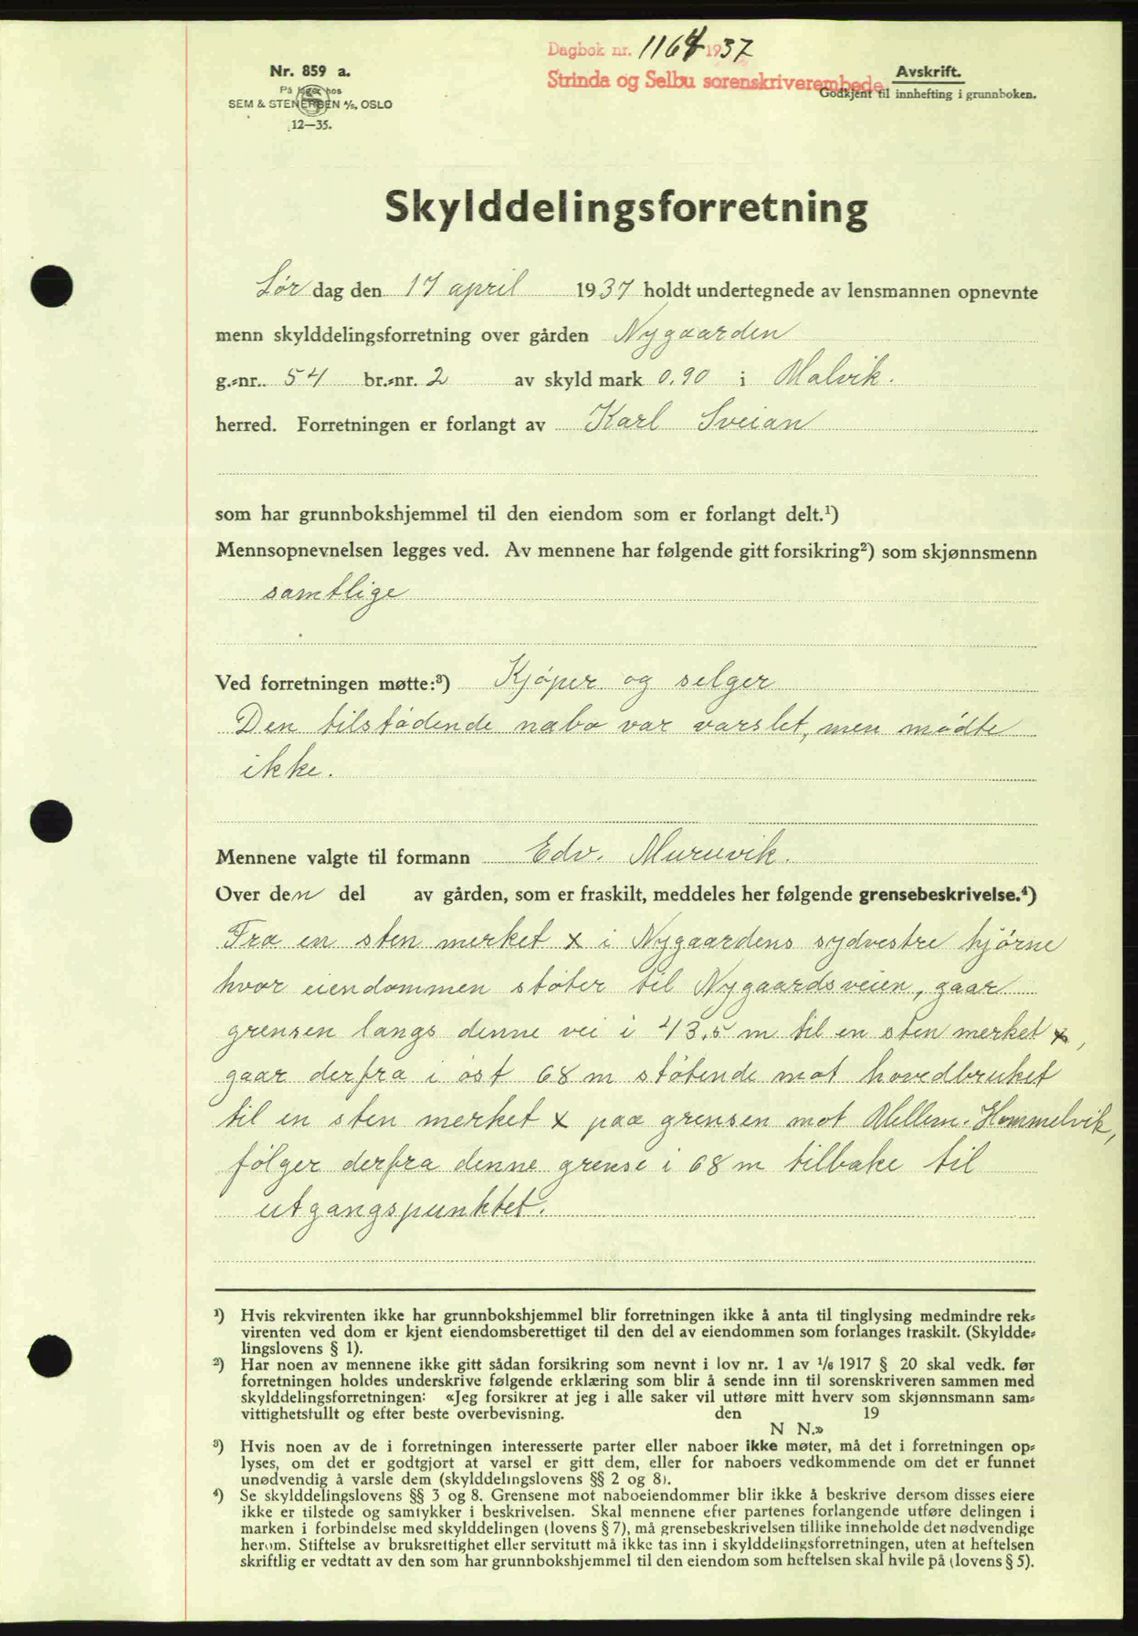 Dagbok nr. 1164 1937
Strinda og Selbu sorenskriverembede
Nr. 859 a.
På lager hos
SEM & STENERSEN A/S, OSLO
12—35.
Avskrift.
Godkjent til innhefting i grunnboken.
Skylddelingsforretning
Lør dag den 17 april 1937 holdt undertegnede av lensmannen opnevnte
menn skylddelingsforretning over gården Nygaarden
g.-nr. 54 br.-nr. 2 av skyld mark 0.90 i Malvik.
herred. Forretningen er forlangt av Karl Sveian
som har grunnbokshjemmel til den eiendom som er forlangt delt.¹)
Mennsopnevnelsen legges ved. Av mennene har følgende gitt forsikring²) som skjønnsmenn
samtlige
Ved forretningen møtte:³) Kjøper og selger
Den tilstødende nabo var varslet, men mødte
ikke.
Mennene valgte til formann Edv. Muruvik.
Over den del av gården, som er fraskilt, meddeles her følgende grensebeskrivelse.⁴)
Fra en sten merket x i Nygaardens sydvestre hjørne
hvor eiendommen støter til Nygaardsveien, gaar
grensen langs denne vei i 43.5 m til en sten merket x,
gaar derfra i øst 68 m støtende mot hovedbruket
til en sten merket x paa grensen mot Mellem-Hommelvik,
følger derfra denne grense i 68 m tilbake til
utgangspunktet.
¹) Hvis rekvirenten ikke har grunnbokshjemmel blir forretningen ikke å anta til tinglysing medmindre rek-
virenten ved dom er kjent eiendomsberettiget til den del av eiendommen som forlanges fraskilt. (Skyldde-
lingslovens § 1).
²) Har noen av mennene ikke gitt sådan forsikring som nevnt i lov nr. 1 av 1/6 1917 § 20 skal vedk. før
forretningen holdes underskrive følgende erklæring som blir å sende inn til sorenskriveren sammen med
skylddelingsforretningen: «Jeg forsikrer at jeg i alle saker vil utføre mitt hverv som skjønnsmann sam-
vittighetsfullt og efter beste overbevisning. den 19
N N.»
³) Hvis noen av de i forretningen interesserte parter eller naboer ikke møter, må det i forretningen op-
lyses, om det er godtgjort at varsel er gitt dem, eller for naboers vedkommende om det er funnet
unødvendig å varsle dem (skylddelingslovens §§ 2 og 8).
⁴) Se skylddelingslovens §§ 3 og 8. Grensene mot naboeiendommer blir ikke å beskrive dersom disses eiere
ikke er tilstede og samtykker i beskrivelsen. Skal mennene efter partenes forlangende utføre delingen i
marken i forbindelse med skylddelingen (lovens § 7), må grensebeskrivelsen tillike inneholde det nødvendige
herom. Stiftelse av bruksrettighet eller servitutt må ikke tas inn i skylddelingsforretningen, uten at heftelsen
skriftlig er vedtatt av den som har grunnbokshjemmel til den eiendom som heftelsen skal hvile på (lovens § 5).